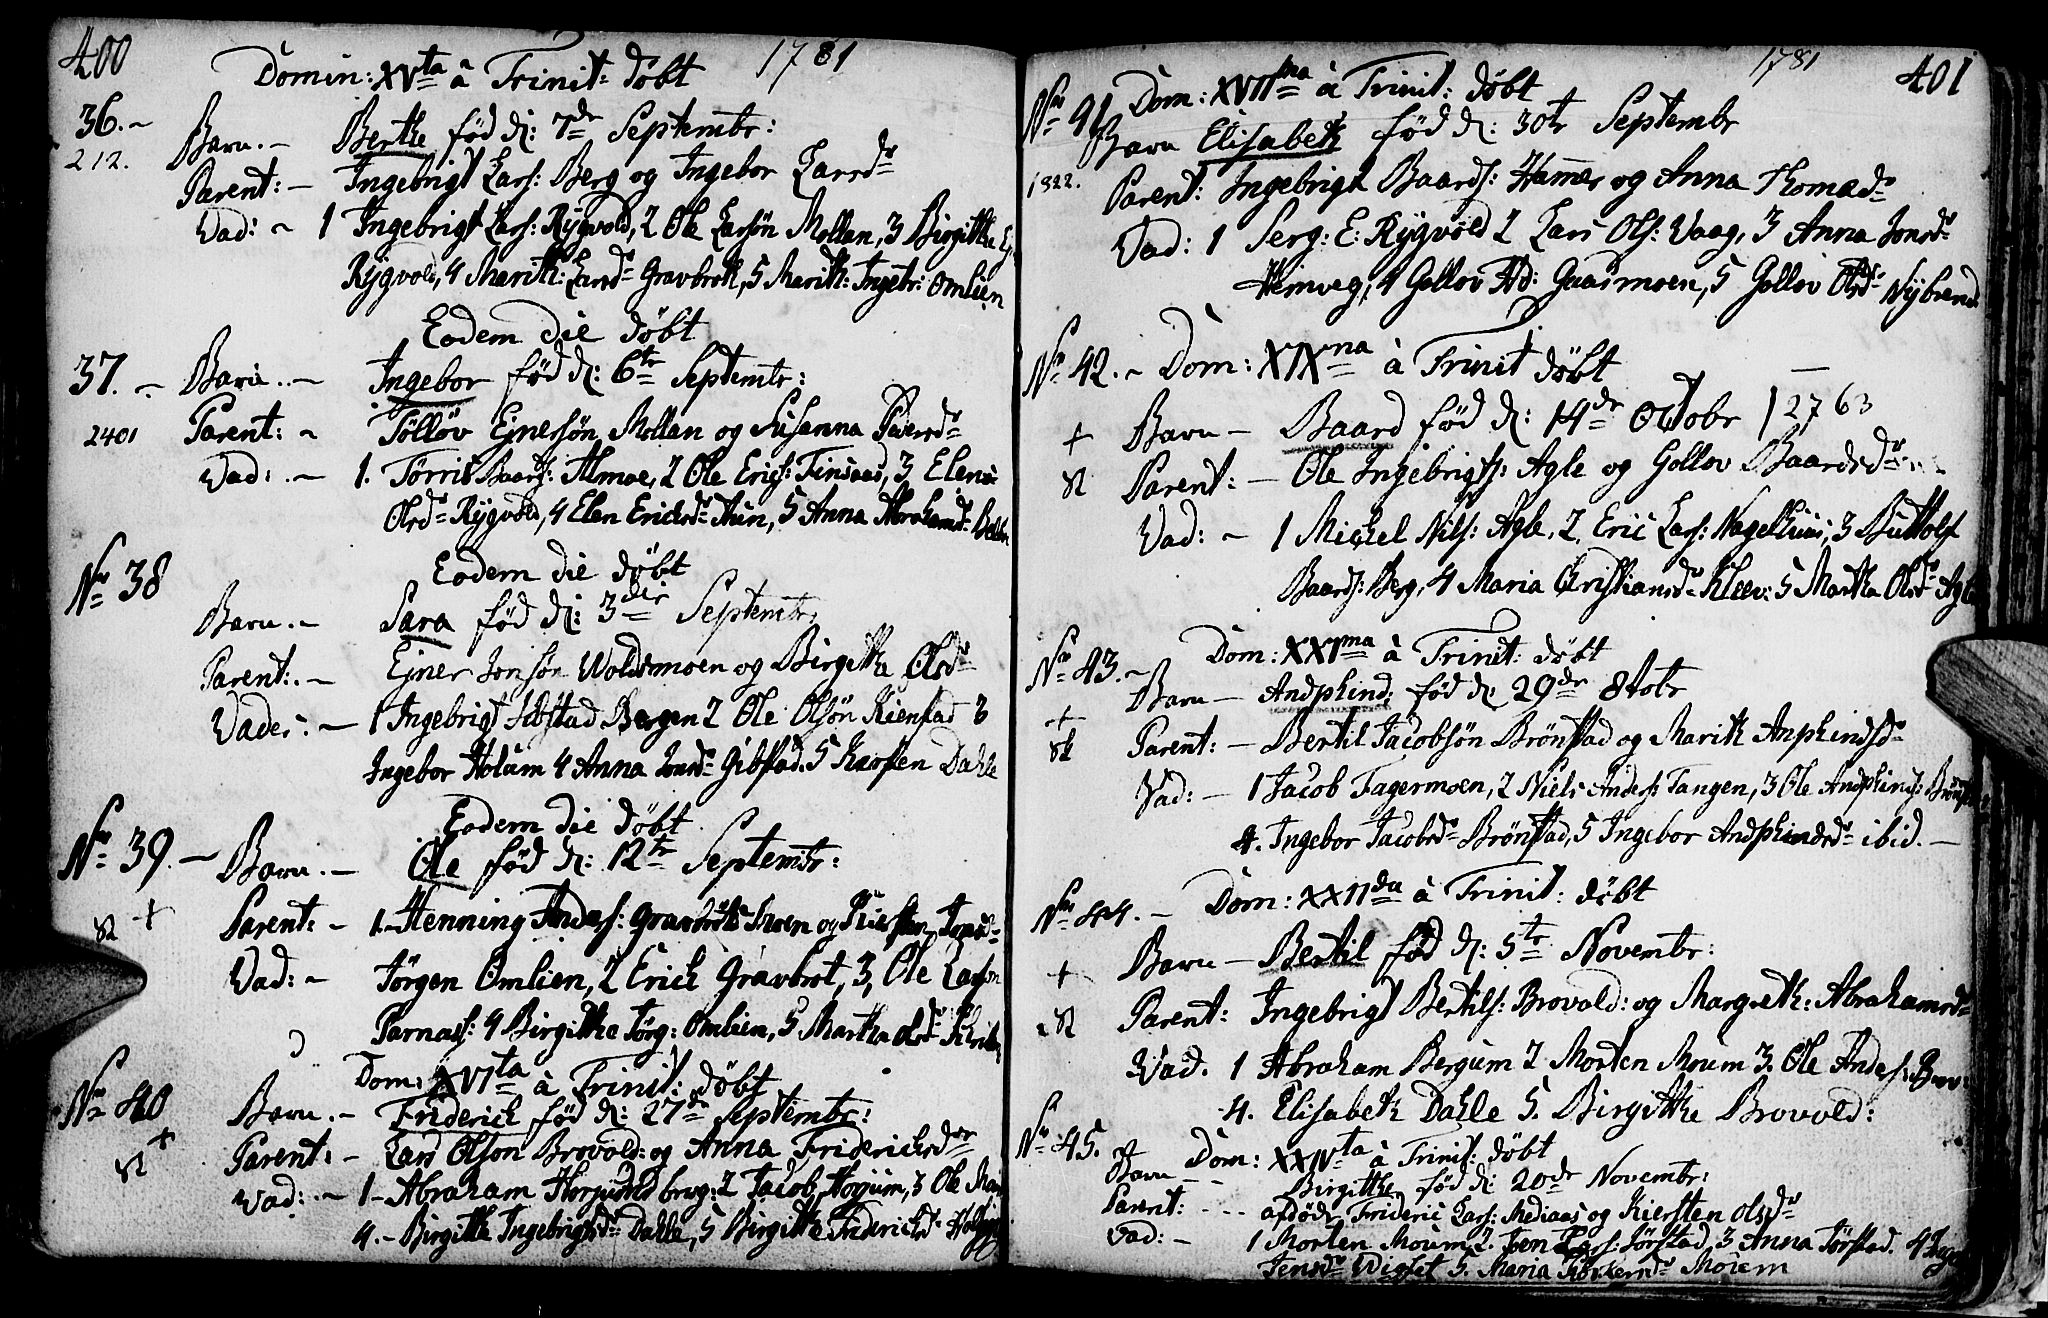 400
Domin: XVta â Trinit: döbt 1781
36. ~ Barn. ~ Berthe fød d: 7de Septembr:
212. Parent: ~ Ingebrigt Lars: Berg og Ingebor Larsd:
Vad: ~ 1 Ingebrigt Lars: Rygvold, 2 Ole Larsön Mollan, 3 Birgitthe Ej
Rÿgvold, 4 Marith: Larsd: Gravbrot, 5 Marith: Ingebr: Omlien
Eodem die döbt
37. ~ Barn. ~ Ingebor fød d: 6te Septembr:
2401 Parent: ~ Tölløv Ejnersön Mollan og Susanna
Vad: ~ 1. Torris Baards: Almoe, 2 Ole Erics: Tinsaas, 3 Elen
Olsd: Rygvold, 4 Elen Ericksd: Aun, 5 Anna Abrahamsd:
Eodem die döbt
No 38
Barn. ~ Sara fød d: 3die Septembr:
Parent: ~ Ejner Jonsön Woldsmoen og Birgitha Olsd:
Vader: ~ 1 Ingebrigt Bergen 2 Ole Olsön Kienstad 3
Ingebor Holum 4 Anna Jonsd: Gibstad. 5 Karsten Dahle
Eodem die döbt
No 39. ~ Barn. ~ Ole fød d: 12te Septembr:
+ Parent: ~ 1 Henning Anders: Gravbrot og Kiersten
Vad: ~ Jörgen Omlien, 2 Erick Gravbrot, 3, Ole Larsön
Parnas: 4 Birgittha Jörg: Omlien, 5 Martha Olsd:
Dom: XVIta â Trinit: döbt
No 40 Barn. ~ Friderich fød d: 27de Septembr:
+ Parent: ~ Lars Olson Brovold: og Anna Friderichsd:
Vad: ~ 1 Abraham 2 Jacob Horjum, 3 Ole
4. Birgitte Ingebrigtsd: Dahle, 5 Birgitte Friderichsd:
1781 401
No 41 Dom: XVIIma â Trinit: döbt
Barn Elisabeth fød d: 30te Septembr
1822. Parent: Ingebrigt Baards: Hammer og Anna Thomasd:
Vad: 1 Serg: E: Rygvold 2 Lars Ols: Vaag, 3 Anna Jonsd:
Heimveg, 4 Gollov Gaasmoen, 5 Gollov Olsd: Nÿbrend
No 42. ~ Dom: XIXna â Trinit döbt
+ Barn ~ Baard fød d: 14de Octobr 12763
Parent: ~ Ole Ingebrigts: Agle og Gollov Baardsd:
Vad: ~ 1 Michel Nils: Agle, 2 Eric Lars: Nagelhuus, 3 Buttolf
Baards: Berg, 4 Maria Christiansd: Kleev: 5 Martha Olsd: Agle
No 43. ~ Dom: XXIma â Trinit: döbt
Barn ~ Andphind: fød d: 29de 8tobr
+ Parent: ~ Bertil Jacobsön Brönstad og Marith Anphindsd:
Vad: ~ 1 Jacob Fagermoen, 2 Niels Anders: Tangen, 3 Ole Andphinds: Brönstad
4. Ingebor Jacobsd: Brönstad, 5 Ingebor Andphindsd: ibid. ~
No 44. ~ Dom: XXIIda â Trinit: döbt
+ Barn ~ Bertil fød d: 5te Novembr:
Parent: Ingebrigt Bertils: Brovold: og Margreth: Abrahamsd:
Vad. 1 Abraham Bergum 2 Morten Moum 3. Ole Anders:
4. Elisabeth Dahle 5. Birgitthe Brovold:
No 45. Dom: XXIVta â Trinit: döbt
Barn ~ Birgitthe fød d: 20de Novembr:
Parent: afdöde Frideric Lars: Mediaas og Kiersten Olsd:
Vad: ~ 1 Morten Moum 2. Lars: Jörstad, 3 Anna Jörstad. 4
Jensd: Wigset 5. Maria Moiem